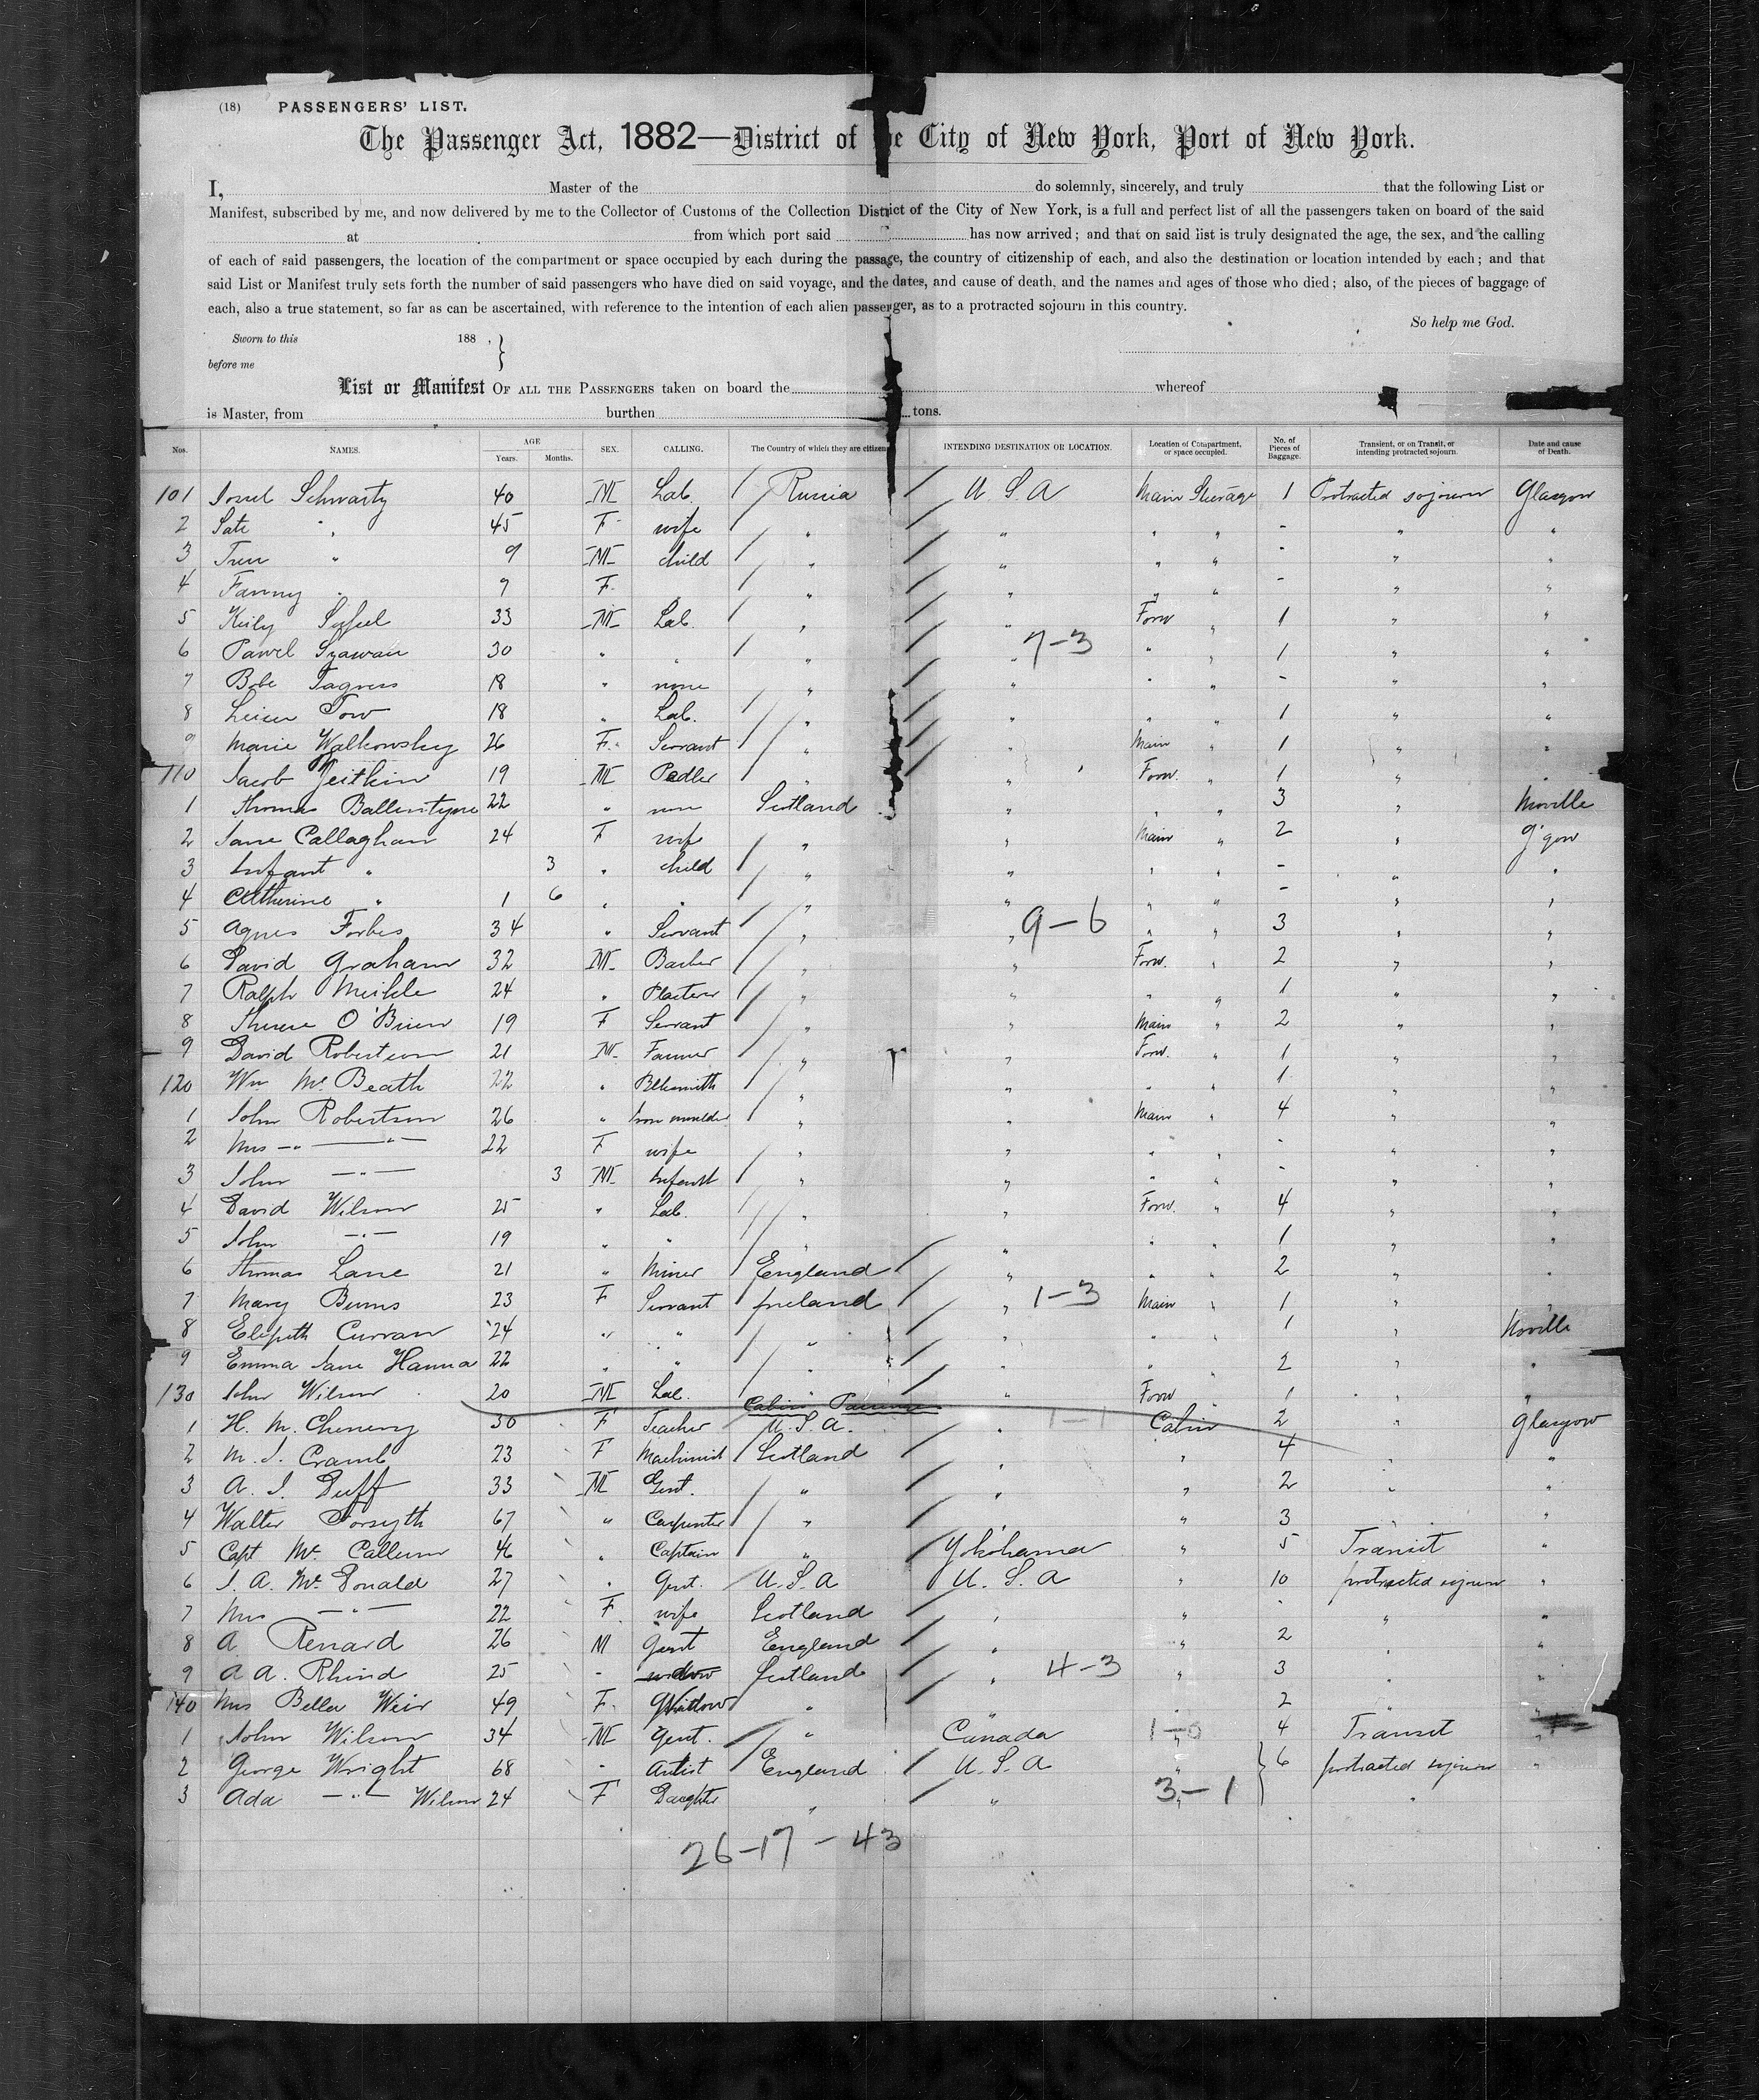 (18) PASSENGERS' LIST.
The Passenger Act, 1882—District of the City of New York, Port of New York.
I, Master of the do solemnly, sincerely, and truly that the following List or
Manifest, subscribed by me, and now delivered by me to the Collector of Customs of the Collection District of the City of New York, is a full and perfect list of all the passengers taken on board of the said
at from which port said has now arrived; and that on said list is truly designated the age, the sex, and the calling
of each of said passengers, the location of the compartment or space occupied by each during the passage, the country of citizenship of each, and also the destination or location intended by each; and that
said List or Manifest truly sets forth the number of said passengers who have died on said voyage, and the dates, and cause of death, and the names and ages of those who died; also, of the pieces of baggage of
each, also a true statement, so far as can be ascertained, with reference to the intention of each alien passenger, as to a protracted sojourn in this country.
So help me God.
Sworn to this 188 ,
before me
List or Manifest OF ALL THE PASSENGERS taken on board the whereof
is Master, from burthen tons.
Nos. NAMES. AGE Years. Months. SEX. CALLING. The Country of which they are citizens INTENDING DESTINATION OR LOCATION. Location of Compartment, or space occupied. No. of Pieces of Baggage. Transient, or on Transit, or intending protracted sojourn. Date and cause of Death.
101 Schwartz 40 M Lab. Russia U.S.A Main Steerage 1 Protracted sojourn Glasgow
2 " 45 F wife " " " " - " "
3 " 9 M child " " " " - " "
4 Fanny " 7 F " " " " " - " "
5 33 M Lab. " " Forw " 1 " "
6 Pawel 30 " " " " 7-3 " " 1 " "
7 18 " none " " " " - " "
8 18 " Lab. " " " " 1 " "
9 Marie Walkowsky 26 F. Servant " " Main " 1 " "
110 Jacob Zeitkin 19 M Pedler " " Forw. " 1 " "
1 Thomas Ballentyne 22 " none Scotland " " " 3 " Moville
2 Jane Callaghan 24 F wife " " Main " 2 " G'gow
3 Infant " 3 " child " " " " - " "
4 Catherine " 1 6 " " " " " " - " "
5 Agnes Forbes 34 " Servant " " 9-6 " " 3 " "
6 David Graham 32 M Barber " " Forw. " 2 " "
7 Ralph Meikle 24 " Plasterer " " " " 1 " "
8 Therese O'Brien 19 F Servant " " Main " 2 " "
9 David Robertson 21 M Farmer " " Forw. " 1 " "
120 Wm Mc Beath 22 " Blksmith " " " " 1 " "
1 John Robertson 26 " Iron moulder " " Main " 4 " "
2 Mrs —"— 22 F wife " " " " - " "
3 John —"— 3 M Infant " " " " - " "
4 David Wilson 25 " Lab. " " Forw. " 4 " "
5 John —"— 19 " " " " " " 1 " "
6 Thomas Lane 21 " Miner England " " " 2 " "
7 Mary Burns 23 F Servant Ireland " 1-3 Main " 1 " "
8 Elspeth Curran 24 " " " " " " 1 " Moville
9 Emma Jane Hanna 22 " " " " " " 2 " "
130 John Wilson 20 M Lab. " " Forw 1 " "
Cabin Passengers
1 H. M. Cheney 30 F Teacher U.S.A. " 1-1 Cabin 2 " Glasgow
2 M. J. Cramb 23 F Machinist Scotland " " 4 " "
3 A. J. Duff 33 M Gent. " " " 2 " "
4 Walter Forsyth 67 " Carpenter " " " 3 " "
5 Capt Mc Callum 46 " Captain " Yokohama " 5 Transit "
6 J. A. Mc Donald 27 " Gent. U.S.A U.S.A " 10 protracted sojourn "
7 Mrs —"— 22 F. wife Scotland " " - " "
8 A Renard 26 M Gent England " " 2 " "
9 A A. Rhind 25 - Scotland " 4-3 " 3 " "
140 Mrs Bella Weir 49 F. Widow " " " 2 " "
1 John Wilson 34 M Gent. " Canada 1-0 4 Transit "
2 George Wright 68 - Artist England U.S.A " 6 protracted sojourn "
3 Ada —"— Wilson 24 F Daughter " " 3-1 "
26-17-43